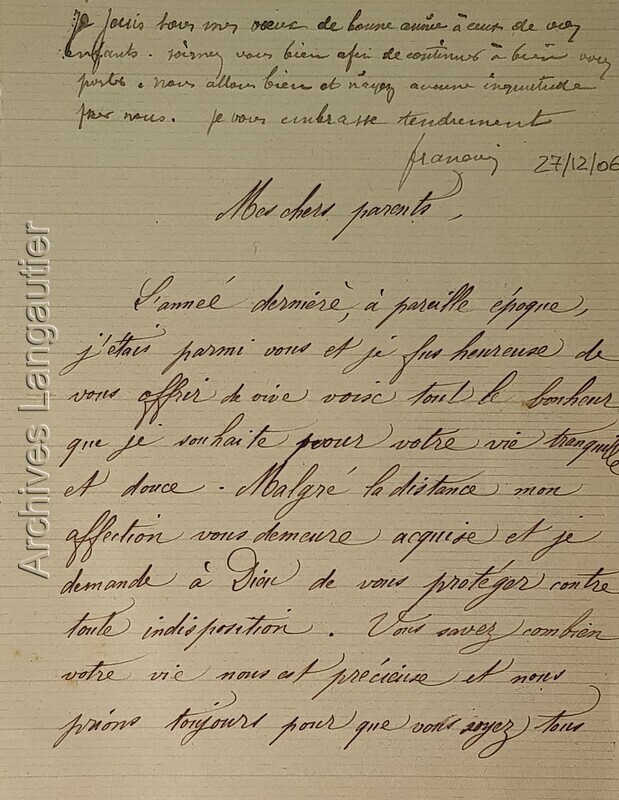 Je joins tous mes voeux de bonne année à ceux de vos
enfants. soignez vous bien afin de continuer à bien vous
porter. nous allons bien et n'ayez aucune inquietude
pour nous. je vous embrasse tendrement
françois 27/12/06
Mes chers parents,
L'anneé dernière, à pareille époque,
j'étais parmi vous et je fus heureuse de
vous offrir de vive voix tout le bonheur
que je souhaite pour votre vie tranquille
et douce. Malgré la distance mon
affection vous demeure acquise et je
demande à Dieu de vous protéger contre
toute indisposition. Vous savez combien
votre vie nous est précieuse et nous
prions toujours pour que vous soyez tous
Archives Langautier